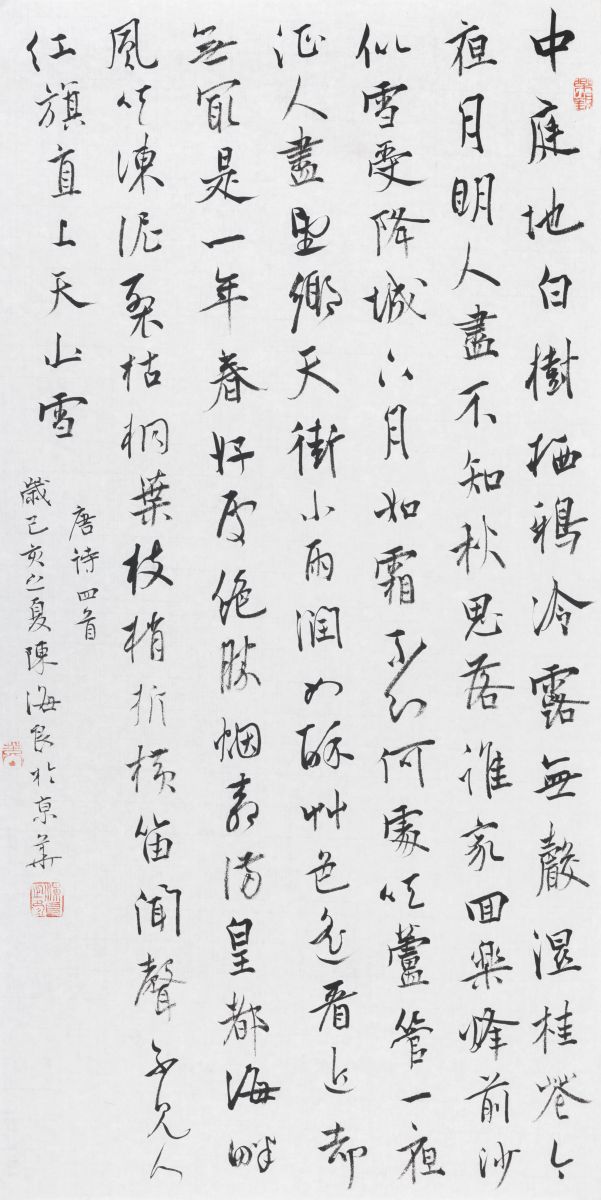 中庭地白樹栖鴉冷露無聲濕桂花今
夜月明人盡不知秋思落誰家回樂烽前沙
似雪受降城下月如霜不知何處吹蘆管一夜
征人盡望鄉天街小雨潤如酥艸色遙看近却
無最是一年春好處絕勝烟柳滿皇都海畔
風吹凍泥裂枯桐葉枝梢折橫笛聞聲不見人
紅旗直上天山雪
唐诗四首
歲己亥之夏陳海良於京華